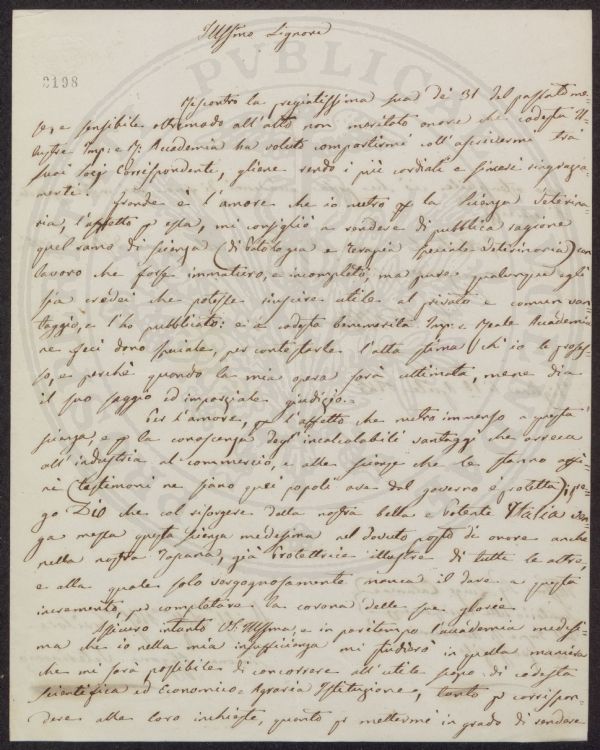 Illssimo Signore
2198
Riscontro la pregiatissima sua de' 31 del passato me-
se, e sensibile oltremodo all'atto non meritato onore che codesta Il-
lustre Imp: e R: Accademia ha voluto compartirmi coll'ascrivermi tra
suoi Socj Corrispondente, gliene rendo i più cordiali e sinceri ringrazia-
menti.
Grande è l'amore che io nutro p la Scienza Veterina-
ria, l'affetto p essa, mi consigliò a rendere di pubblica ragione
quel ramo di scienza (di Patologia e Terapia speciale Veterinaria) con
lavoro che forse immaturo, e incompleto; ma pure qualunque egli
sia credei che potesse riuscire utile al privato e comun van-
taggio, e l'ho pubblicato: e a codesta benemerita Imp: e Reale Accademia
ne feci dono speciale, per contestarle l'alta stima ch'io le profes-
so, e perchè quando la mia opera sarà ultimata, mene dia
il suo saggio ed imparziale giudizio.
Per l'amore, p l'affetto che nutro immenso a questa
scienza, e p la conoscenza degl'incalcolabili vantaggi che arreca
all'industria al commercio, e alle scienze che le stanno affi-
ni (testimoni ne siano quei popoli ove dal governo è protetta) pre-
go Dio che col risorgere della nostra bella e Potente Italia ven-
ga messa questa scienza medesima nel dovuto posto di onore anche
nella nostra Toscana, già Protettrice illustre di tutte le altre,
e alla quale solo vergognosamente manca il dare a questa
incremento, p completare la corona delle sue glorie.
Assicuro intanto VS: Illssma, e in pari tempo l'accademia medesi-
ma che io nella mia insufficienza mi studierò in quella maniera
che mi sarà possibile di concorrere all'utile scopo di codesta
Scientifica ed Economico-Agraria Istituzione, tanto p corrispon-
dere alle loro inchieste, quanto p mettermi in grado di rendere